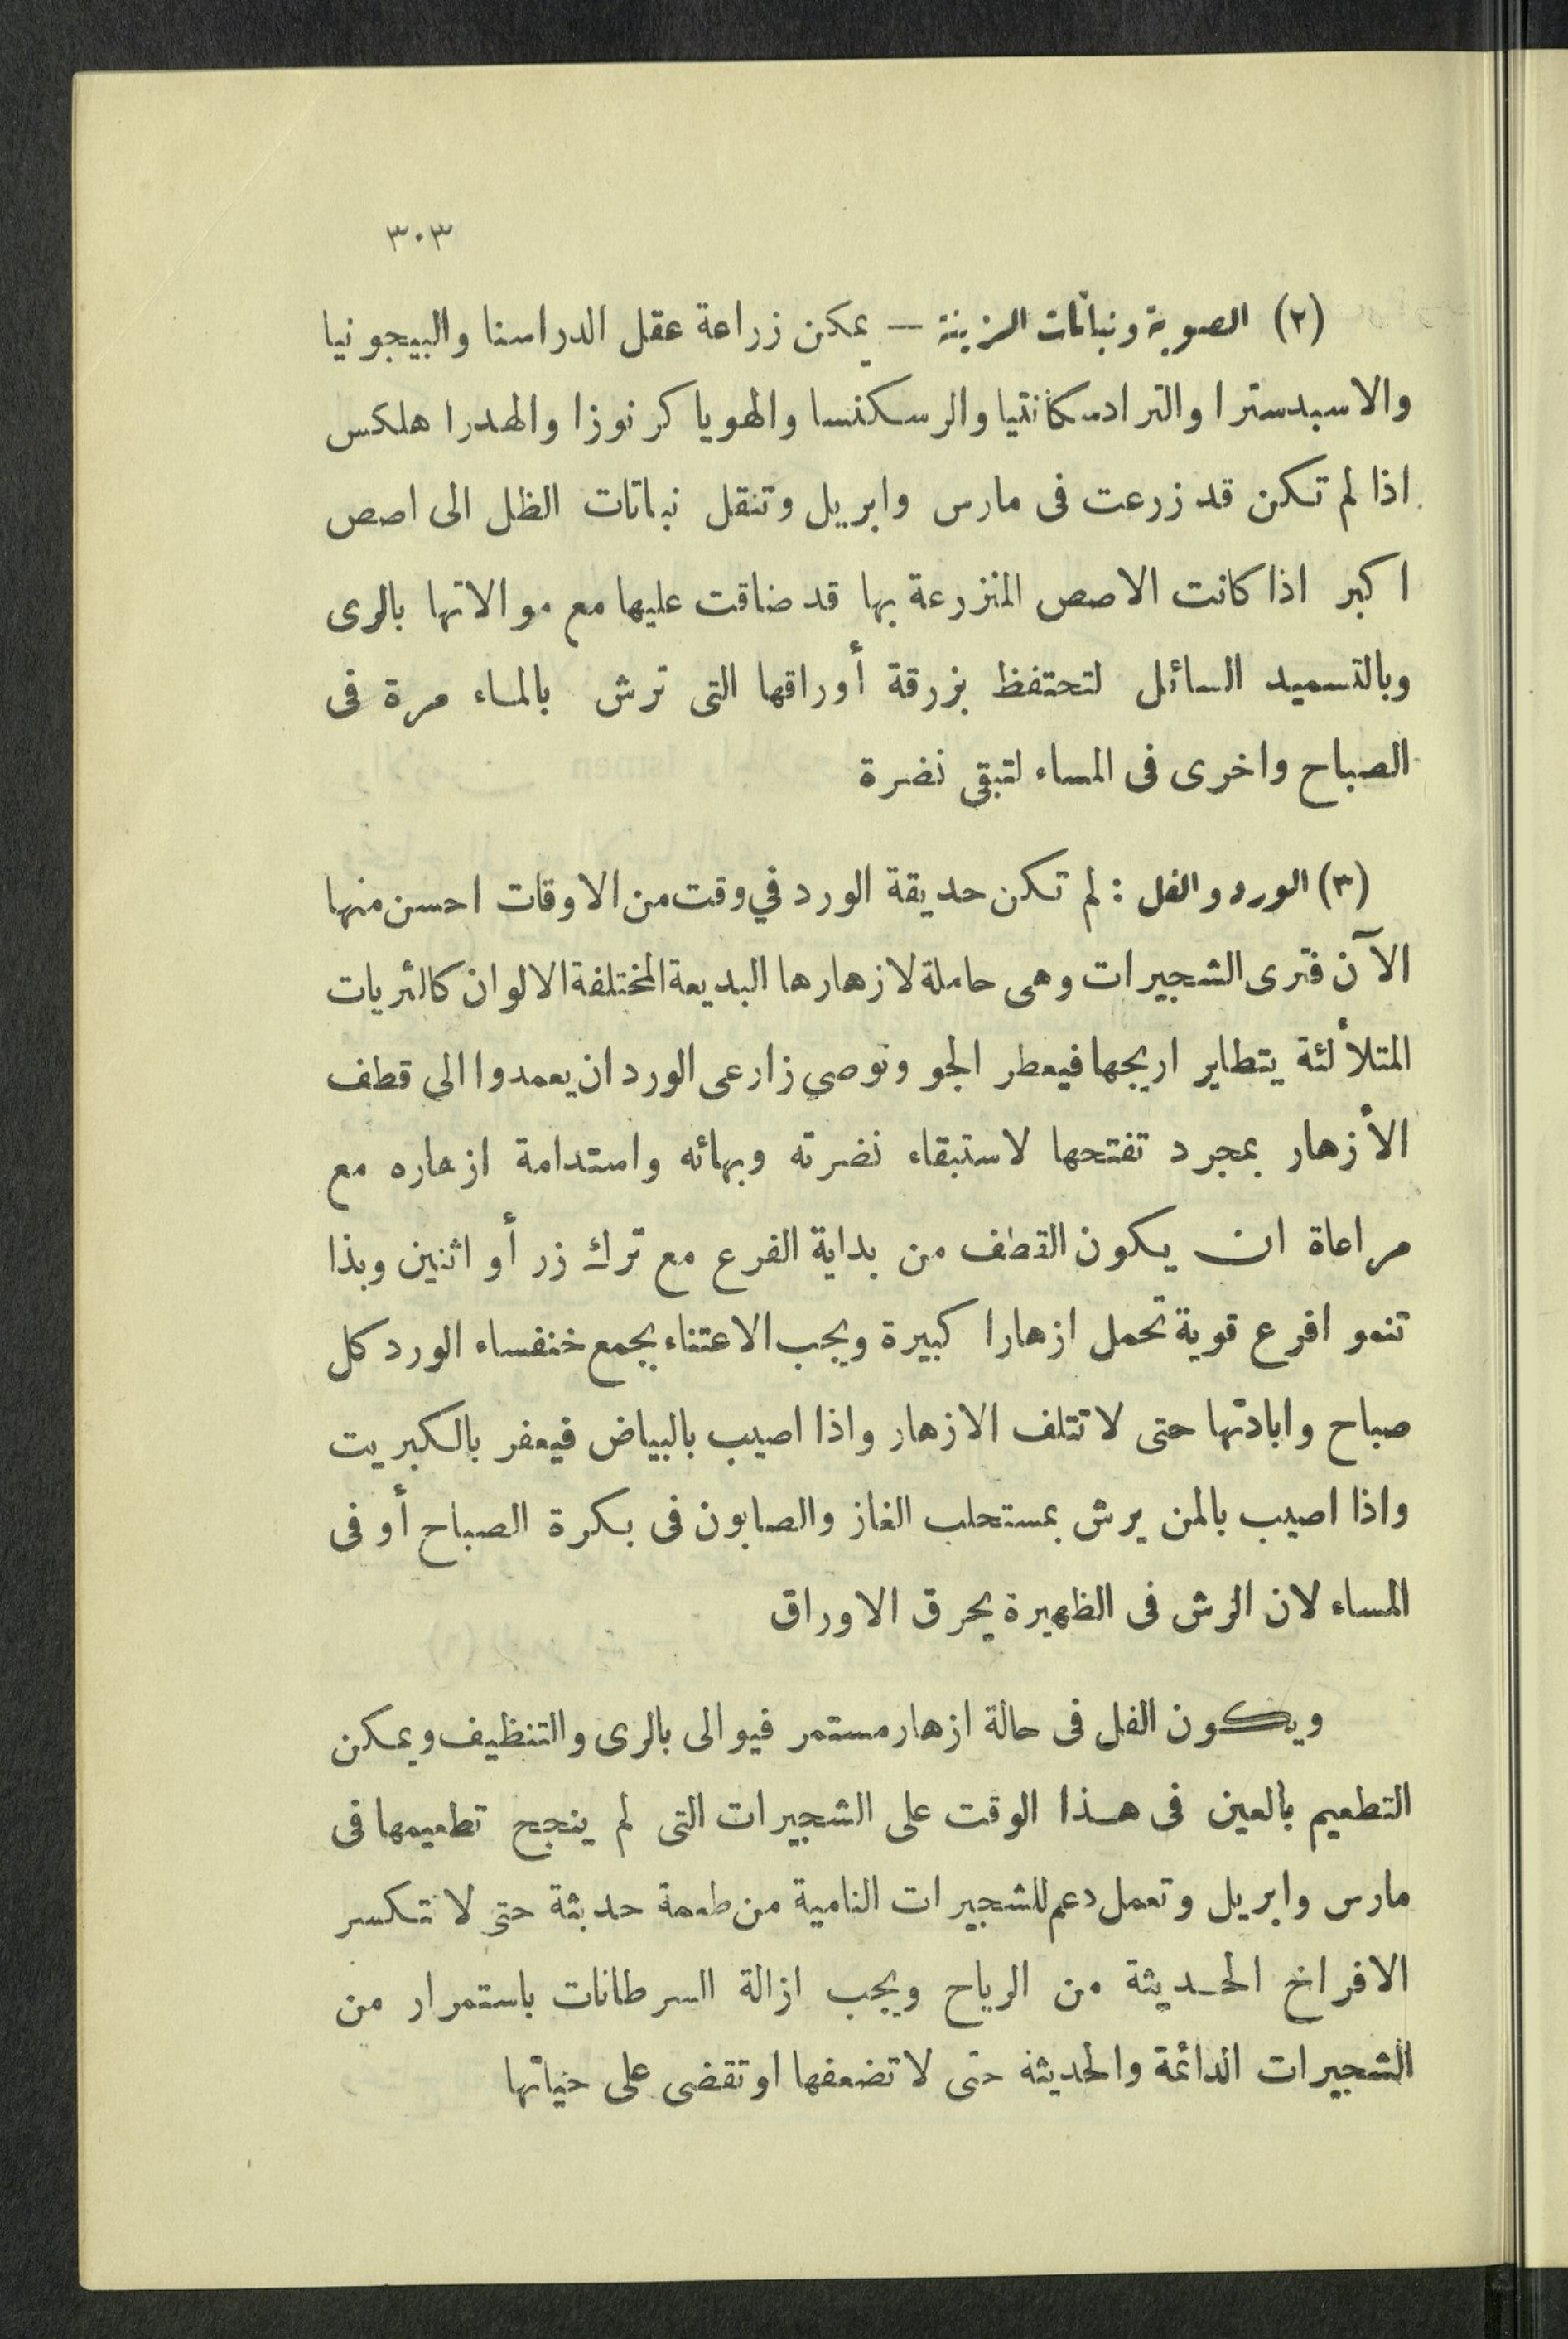 ٣٠٣
(٢) الصوبة ونباتات الزينة — يمكن زراعة عقل الدراسنا والبيجونيا
والاسبدسترا والترادسكانتيا والرسكنسا والهويا كرنوزا والهدرا هلكس
اذا لم تكن قد زرعت فى مارس وابريل وتنقل نباتات الظل الى اصص
اكبر اذا كانت الاصص المنزرعة بها قد ضاقت عليها مع موالاتها بالرى
وبالتسميد السائل لتحتفظ بزرقة أوراقها التى ترش بالماء مرة فى
الصباح واخرى فى المساء لتبقى نضرة
(٣) الورد والفل : لم تكن حديقة الورد في وقت من الاوقات احسن منها
الآن فترى الشجيرات وهى حاملة لازهارها البديعة المختلفة الالوان كالثريات
المتلألئة يتطاير اريجها فيعطر الجو ونوصي زارعى الورد ان يعمدوا الى قطف
الأزهار بمجرد تفتحها لاستبقاء نضرته وبهائه واستدامة ازهاره مع
مراعاة ان يكون القطف من بداية الفرع مع ترك زر أو اثنين وبذا
تنمو افرع قوية تحمل ازهارا كبيرة ويجب الاعتناء بجمع خنفساء الورد كل
صباح وابادتها حتى لا تتلف الازهار واذا اصيب بالبياض فيعفر بالكبريت
واذا اصيب بالمن يرش بمستحلب الغاز والصابون فى بكرة الصباح أو فى
المساء لان الرش فى الظهيرة يحرق الاوراق
ويكون الفل فى حالة ازهار مستمر فيوالى بالرى والتنظيف ويمكن
التطعيم بالعين فى هذا الوقت على الشجيرات التى لم ينجح تطعيمها فى
مارس وابريل وتعمل دعم للشجيرات النامية من طعمة حديثة حتى لا تكسر
الافراخ الحديثة من الرياح ويجب ازالة السرطانات باستمرار من
الشجيرات الدائمة والحديثة حتى لا تضعفها او تقضى على حياتها